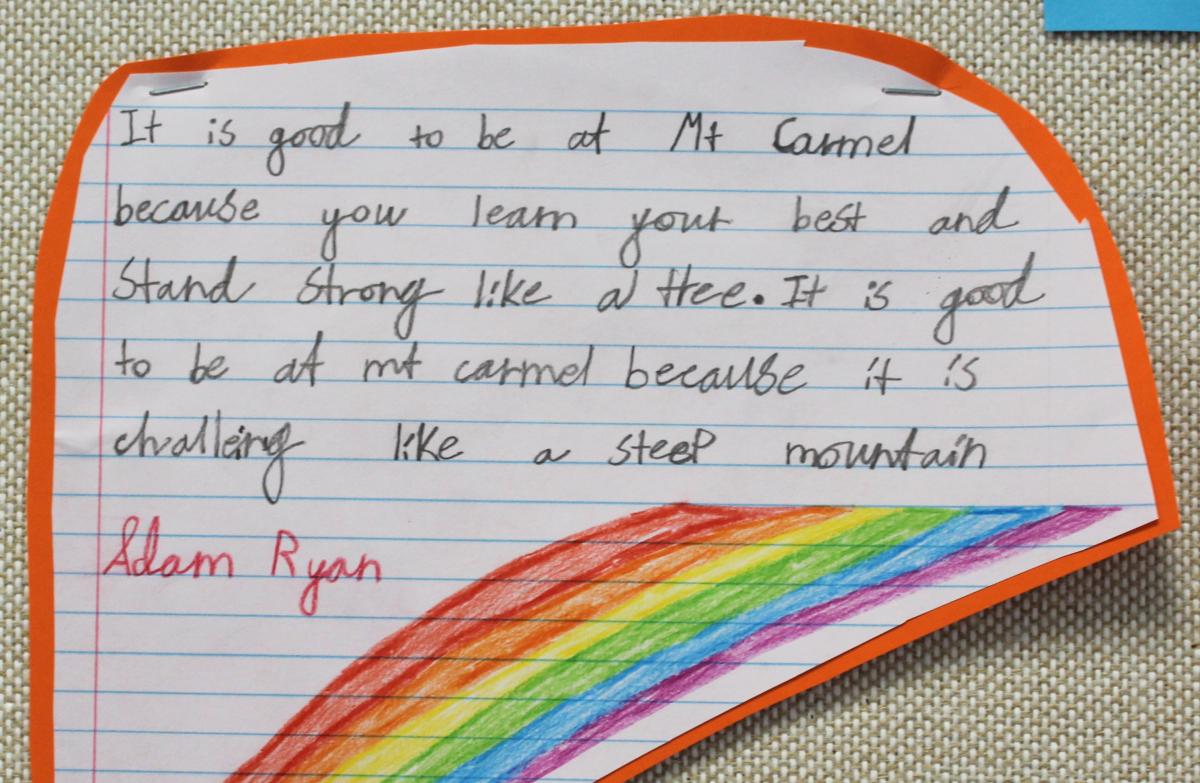 It is good to be at Mt Carmel
because you learn your best and
Stand Strong like a tree. It is good
to be at mt carmel because it is
challeing like a steep mountain
Adam Ryan